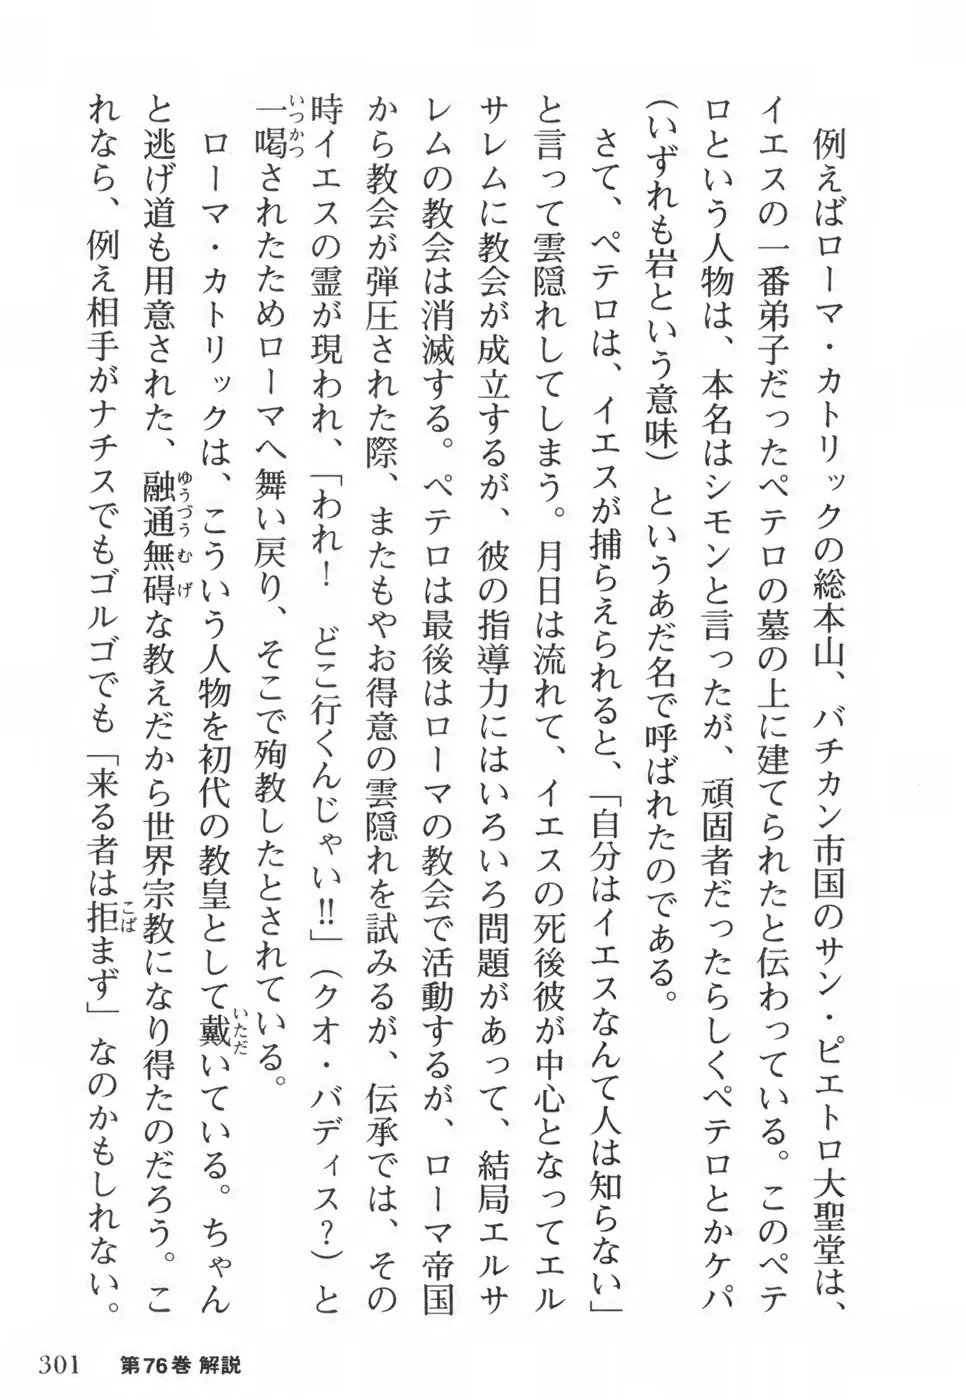 例えばローマ・カトリックの総本山、バチカン市国のサン・ピエトロ大聖堂は、
イエスの一番弟子だったペテロの墓の上に建てられたと伝わっている。このペテ
ロという人物は、本名はシモンと言ったが、頑固者だったらしくペテロとかケパ
(いずれも岩という意味)というあだ名で呼ばれたのである。
さて、ペテロは、イエスが捕らえられると、「自分はイエスなんて人は知らない」
と言って雲隠れしてしまう。月日は流れて、イエスの死後彼が中心となってエル
サレムに教会が成立するが、彼の指導力にはいろいろ問題があって、結局エルサ
レムの教会は消滅する。ペテロは最後はローマの教会で活動するが、ローマ帝国
から教会が弾圧された際、またもやお得意の雲隠れを試みるが、伝承では、その
時イエスの霊が現われ、「われ! どこ行くんじゃい!!」(クオ・バディス?)と
一喝されたためローマへ舞い戻り、そこで殉教したとされている。
ローマ・カトリックは、こういう人物を初代の教皇として戴いている。ちゃん
と逃げ道も用意された、融通無碍な教えだから世界宗教になり得たのだろう。こ
れなら、例え相手がナチスでもゴルゴでも「来る者は拒まず」なのかもしれない。
いつかつ
いただ
ゆうづうむげ
こば
301 第76巻 解説